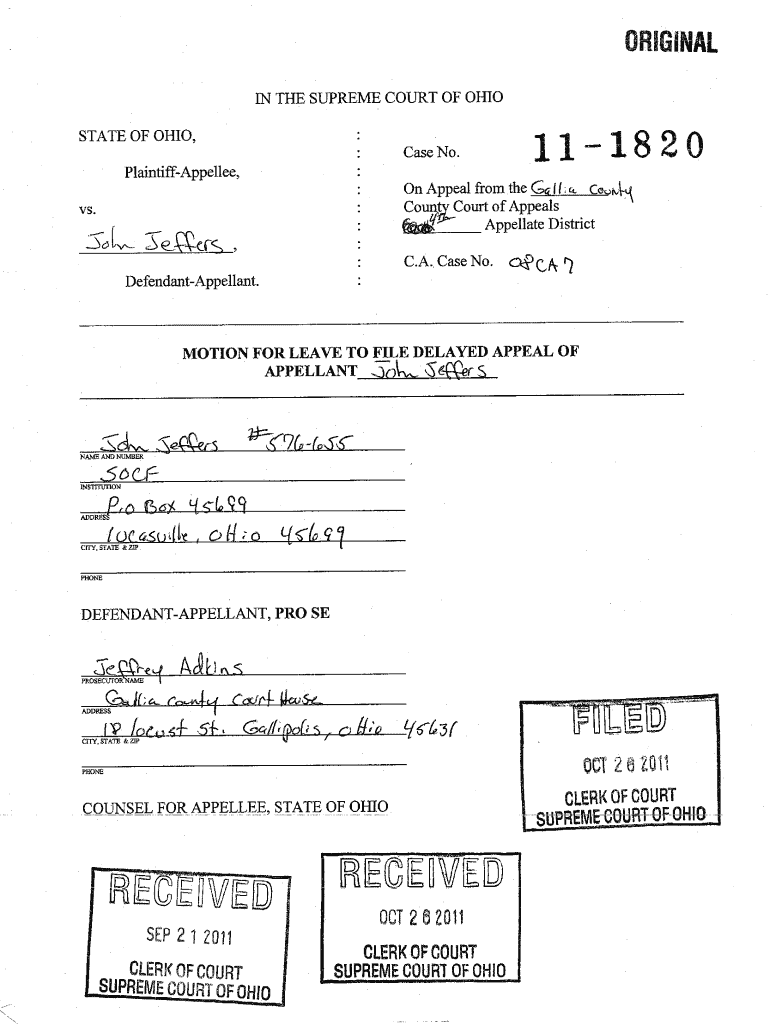 ORIGINAL
IN THE SUPREME COURT OF OHIO
STATE OF OHIO,
Plaintiff-Appellee,
vs.
John Jeffers,
Defendant-Appellant.
: Case No. 11-1820
: On Appeal from the Gallia County
: County Court of Appeals
: 4th Appellate District
: C.A. Case No. 08CA7
MOTION FOR LEAVE TO FILE DELAYED APPEAL OF
APPELLANT John Jeffers
John Jeffers #576-655
NAME AND NUMBER
SOCF
INSTITUTION
P.O Box 45699
ADDRESS
lucasville, OHio 45699
CITY, STATE & ZIP
PHONE
DEFENDANT-APPELLANT, PRO SE
Jeffrey Adkins
PROSECUTOR NAME
Gallia county Court House
ADDRESS
18 locust St. Gallipolis, oHio 45631
CITY, STATE & ZIP
PHONE
COUNSEL FOR APPELLEE, STATE OF OHIO
FILED
OCT 26 2011
CLERK OF COURT
SUPREME COURT OF OHIO
RECEIVED
SEP 21 2011
CLERK OF COURT
SUPREME COURT OF OHIO
RECEIVED
OCT 26 2011
CLERK OF COURT
SUPREME COURT OF OHIO